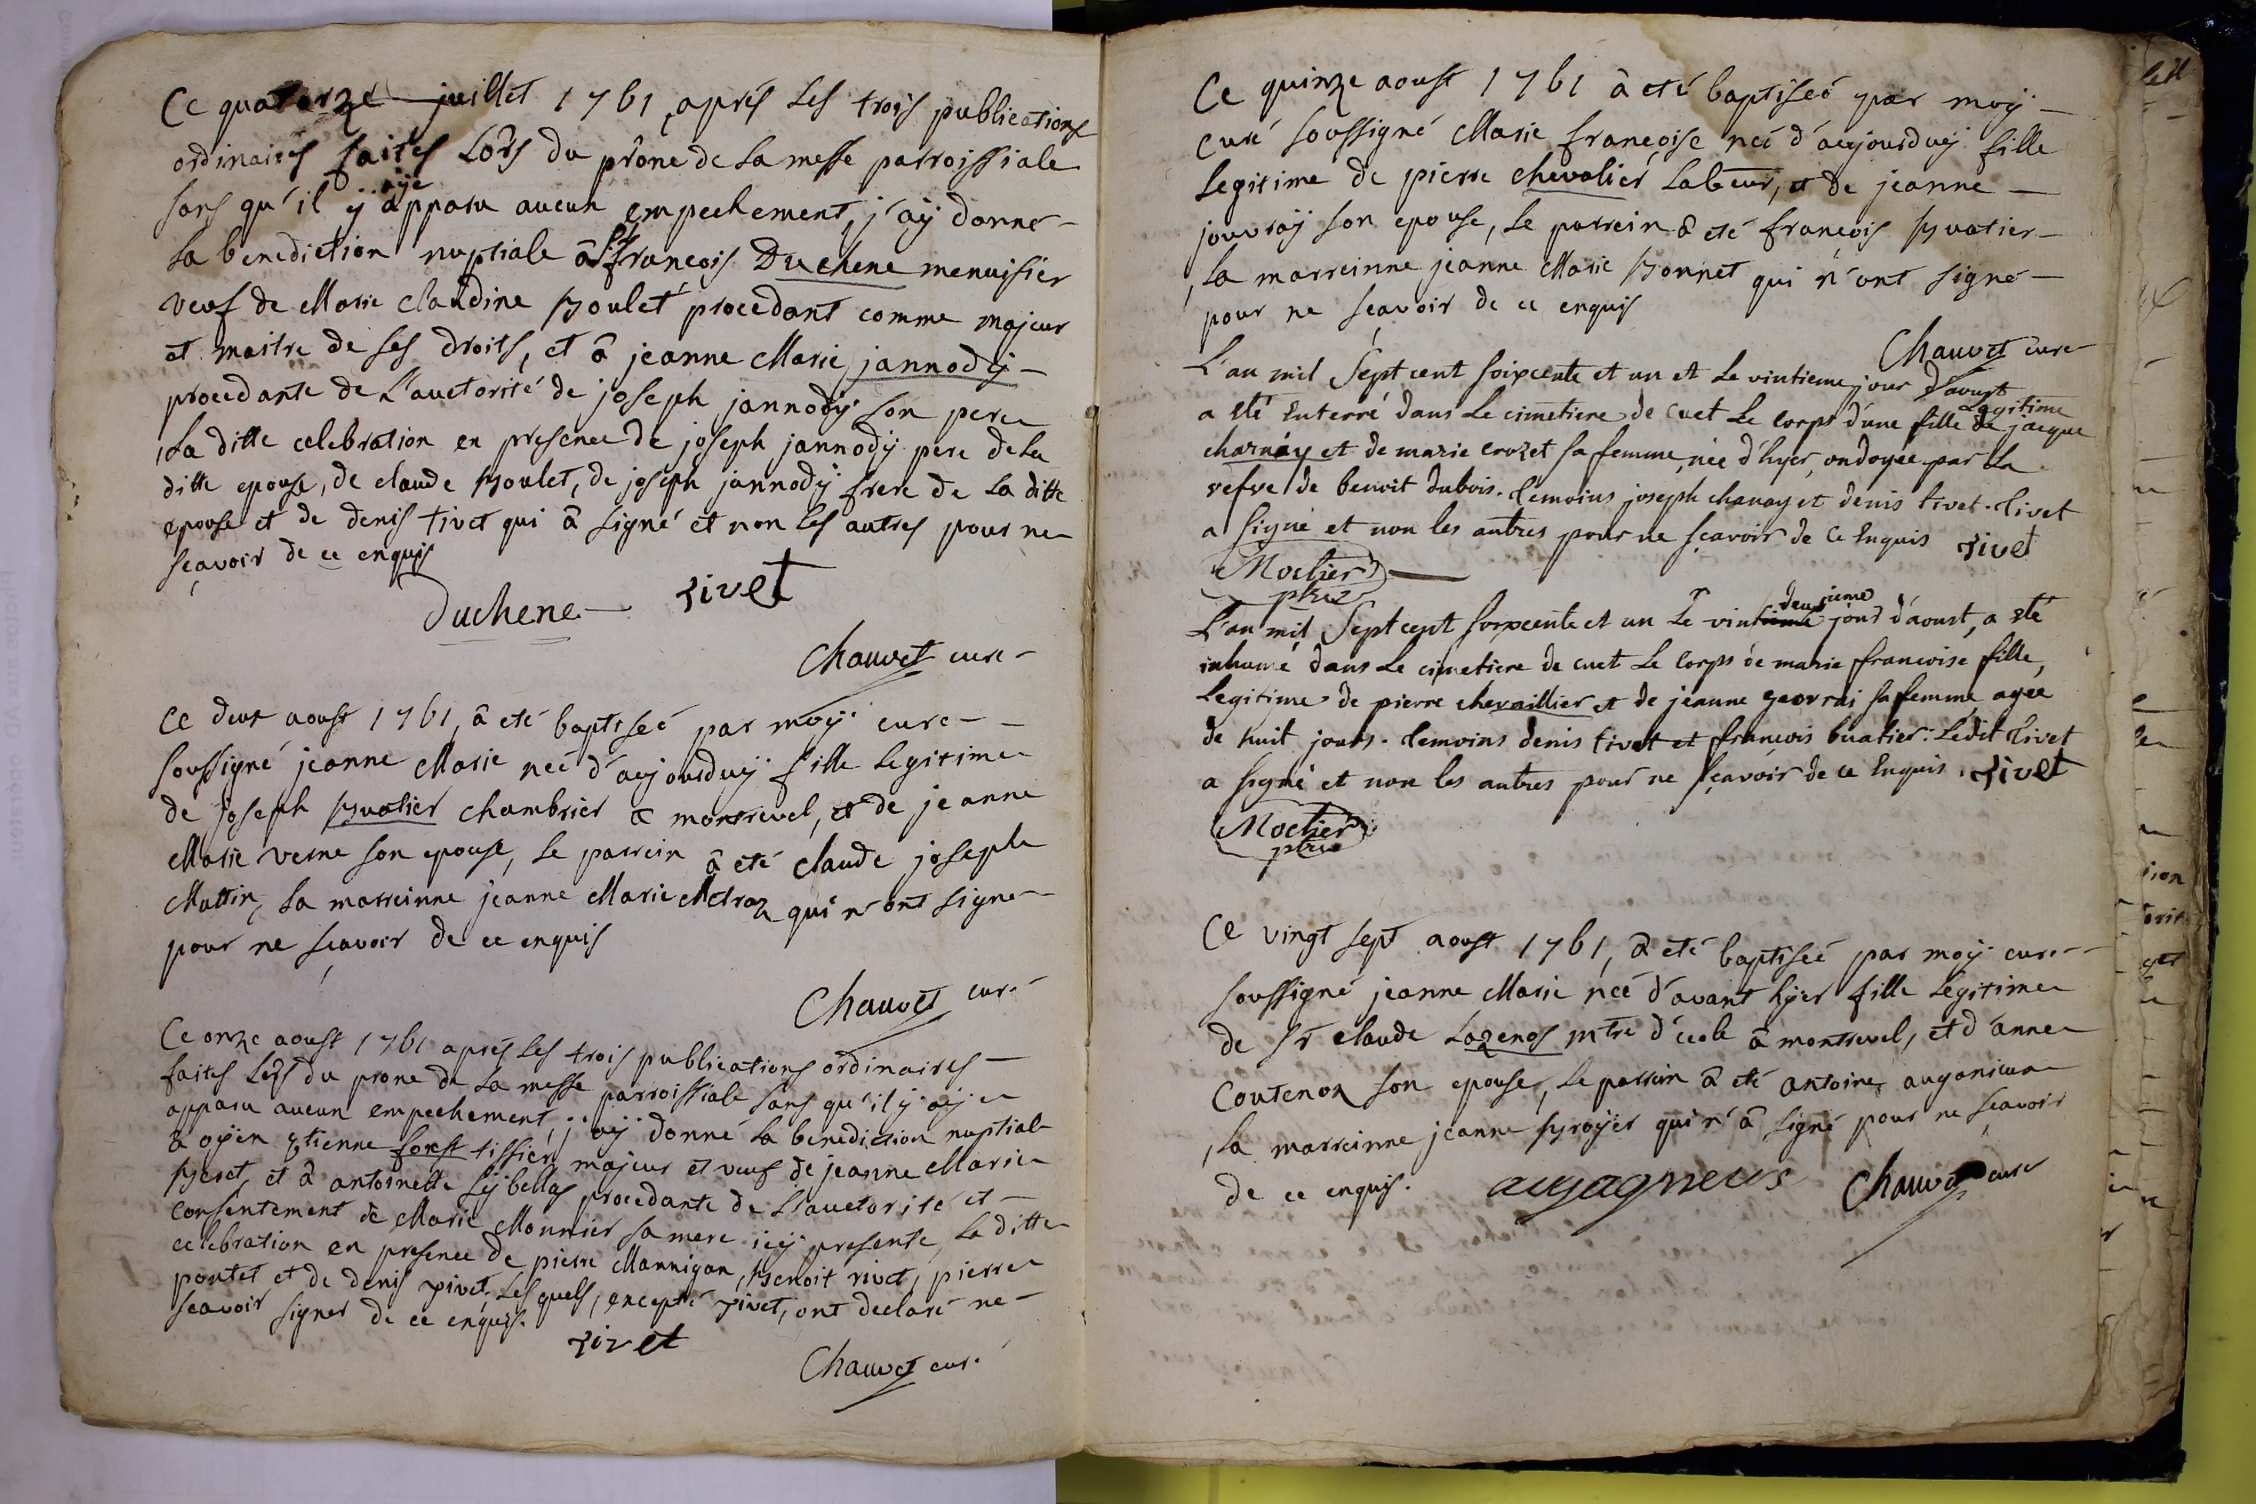 Ce quatorze juillet 1761, aprés les trois publications
ordinaires faites Lors du prône de la messe parroissiale
sans qu'il y aÿe apparu aucun empechement, j'aÿ donné
la benediction nuptiale â Sr françois Duchene menuisier
veuf de Marie Claudine Boulet procedant comme majeur
et maitre de ses droits, et â jeanne Marie jannodÿ
procedante de L'auctorité de joseph jannodÿ son pere
, la ditte celebration en presence de joseph jannodÿ pere de la
ditte epouse, de claude Boulet, de joseph jannodÿ frere de la ditte
epouse et de denis tivet qui â signé et non les autres pour ne
sçavoir de ce enquis
Duchene tivet
Chauvet curé
Ce deux aoust 1761, â eté baptiseé par moÿ curé
soussigné jeanne Marie neé d'aujourduÿ fille legitime
de joseph Buatier chambrier â montrevel, et de jeanne
Marie verne son epouse, le parrein â eté claude joseph
Muttin, la marreinne jeanne Marie Metraz qui n'ont signé
pour ne sçavoir de ce enquis
Chauvet curé
Ce onze aoust 1761 aprés les trois publications ordinaires
faites Lors du prone de la messe parroissiale sans qu'il y aÿe
apparu aucun empechement, j'aÿ donné la benediction nuptiale
â etienne forest tissier, majeur et veuf de jeanne Marie
Beret, et â antoinette seÿbellas procedante de L'auctorité et
consentement de Marie Monnier sa mere icÿ presente, la ditte
celebration en presence de pierre Mannigan, Benoit rivet, pierre
poutet et de denis tivet. Lesquels, excepté tivet, ont declaré ne
sçavoir signer de ce enquis.
tivet
Chauvet curé
Ce quinze aoust 1761 â eté baptiseé par moÿ
curé soussigné Marie françoise neé d'aujourduÿ fille
legitime de pierre chevalier Labeur, et de jeanne
jouvraÿ son epouse, le parrein â eté françois Buatier
, la marreinne jeanne Marie Bonnet qui n'ont signé
pour ne sçavoir de ce enquis
Chauvet curé
L'an mil Sept cent soixcente et un et le vintieme jour d'aoust
a eté enterré dans le cimetiere de cuet Le corps d'une fille Legitime de jacque
charnay et de marie crozet sa femme, née d'hyer, ondoyée par la
vefve de benoit dubois. temoins joseph chanay et denis tivet. tivet
a signé et non les autres pour ne sçavoir de ce enquis tivet
Mochier
ptre
L'an mil Sept cent soixcente et un Le vintieme deuxieme jour d'aoust, a eté
inhumé dans Le cimetiere de cuet Le corps de marie francoise fille
Legitime de pierre chevaillier et de jeanne geovrai sa femme, agée
de huit jours. temoins denis tivet et francois buatier: Ledit tivet
a signé et non les autres pour ne sçavoir de ce enquis. tivet
Mochier
ptre
Ce vingt sept aoust 1761, â eté baptiseé par moÿ curé
soussigné jeanne Marie neé d'avant hÿer fille legitime
de Sr claude Lozenos mtre d'ecole â montrevel, et d'anne
Coutenoz son epouse, le parrein â eté antoine auganieur
, la marreinne jeanne Broÿer qui n'â signé pour ne sçavoir
de ce enquis. auyagneurs Chauvet curé